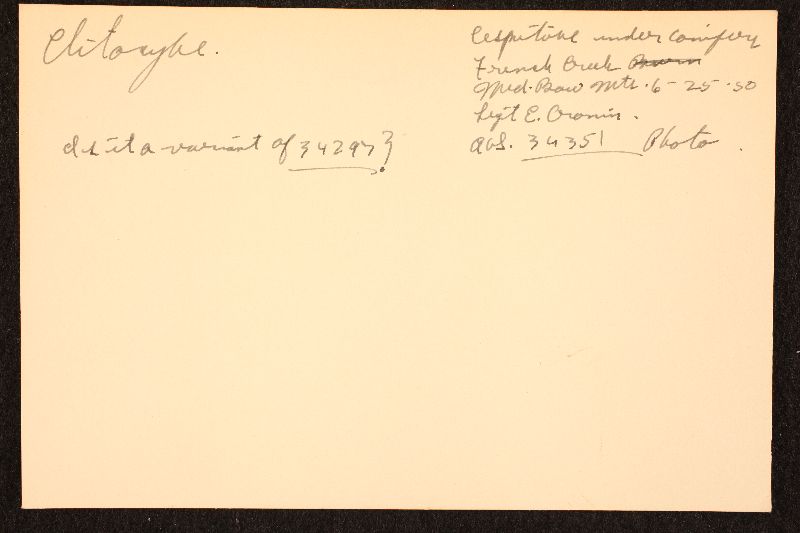 Clitocybe.
Is it a variant of 34297?
Cespitose under conifers
French Creek
Med. Bow Mts. 6-25-50
Legit E. Cronin.
AHS. 34351 Photo.